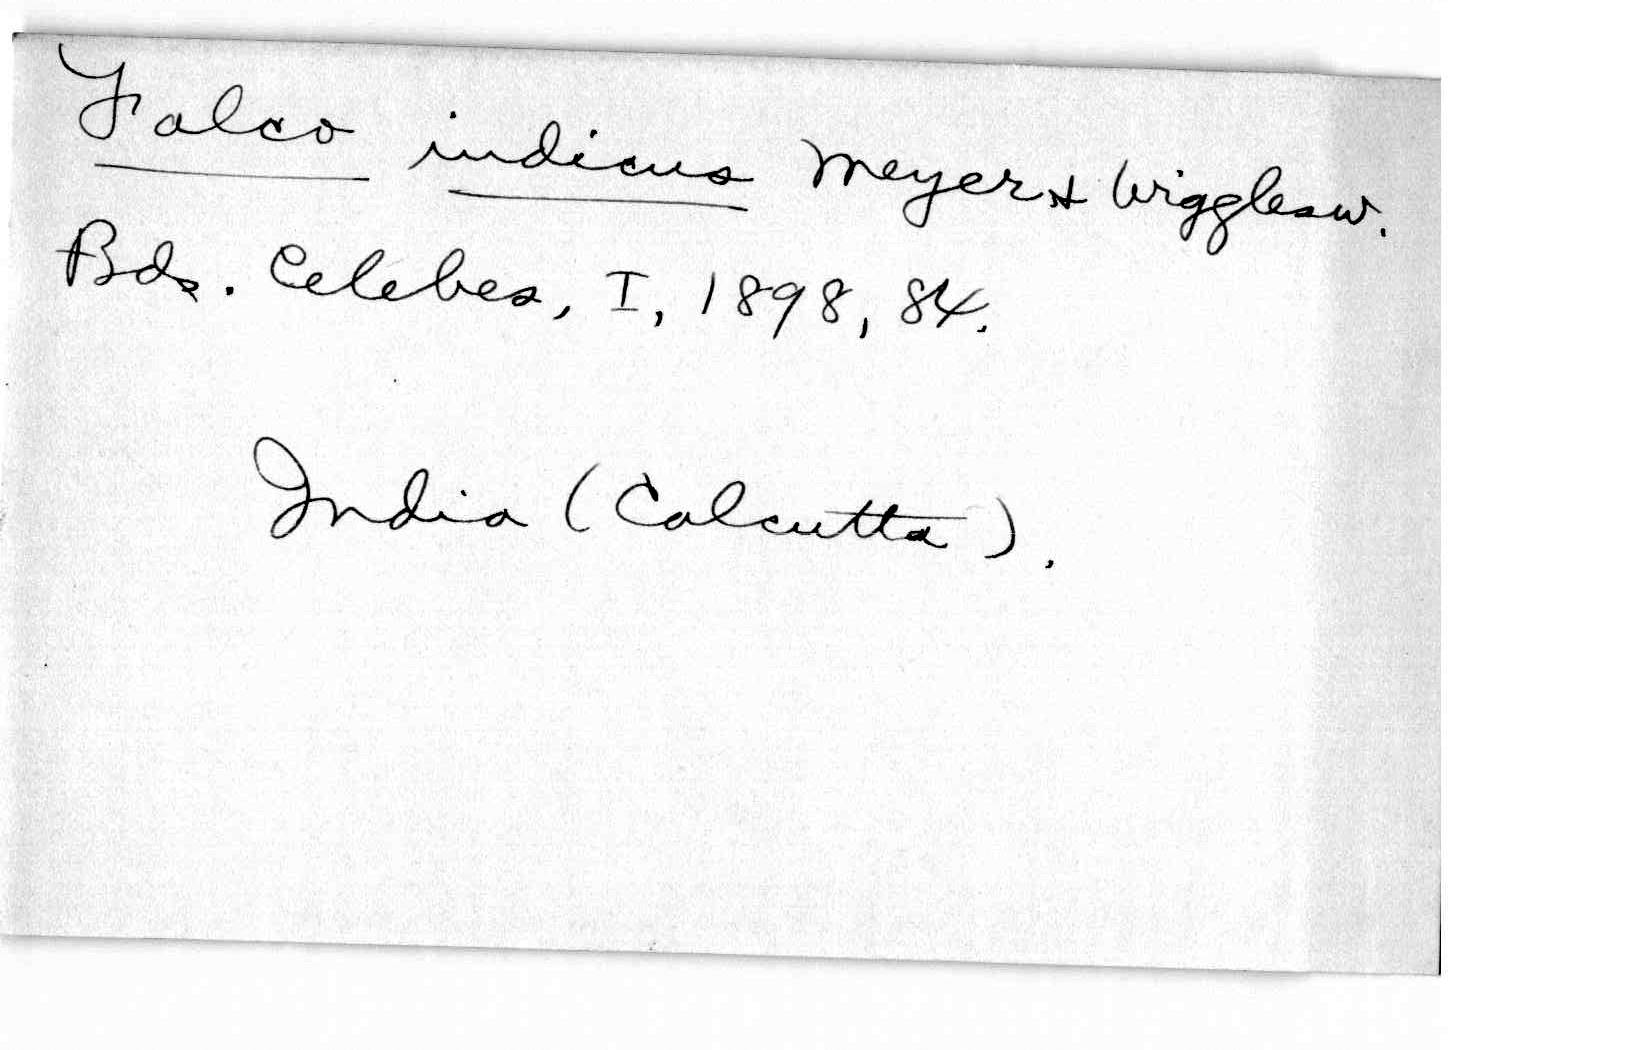 Falco indicus Meyer & Wigglesw.
Bds. Celebes, I, 1898, 84.
India (Calcutta).